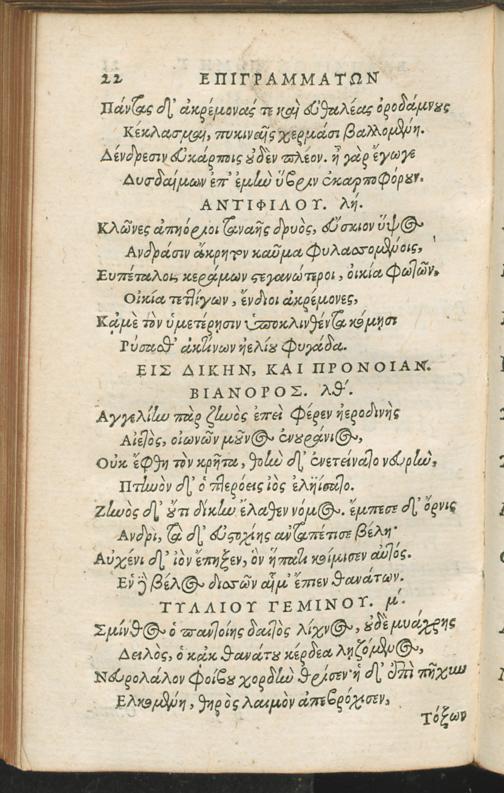 22 ΕΠΙΓΡΑΜΜΑΤΩΝ
Πάντας δ' ἀκρέμονάς τε καὶ εὐθαλέας ὀροδάμνους
Κέκλασμαι, πυκιναῖς χερμάσι βαλλομένη.
Δένδρεσιν εὐκάρποις οὐδὲν πλέον. ἦ γὰρ ἔγωγε
Δυσδαίμων ἐπ' ἐμὴν ὕβριν ἐκαρποφόρουν.
ΑΝΤΙΦΙΛΟΥ. λή.
Κλῶνες ἀπηόριοι ταναῆς δρυὸς, εὔσκιον ὕψος
Ἀνδράσιν ἄκρητον καῦμα φυλασσομένοις,
Εὐπέταλοι, κεράμων στεγανώτεροι, οἰκία φωτῶν,
Οἰκία τεττίγων, ἔνδιοι ἀκρέμονες,
Κἀμὲ τὸν ὑμετέρῃσιν ὑποκλινθέντα κόμῃσι
Ῥύσασθ' ἀκτίνων ἠελίου φυγάδα.
ΕΙΣ ΔΙΚΗΝ, ΚΑΙ ΠΡΟΝΟΙΑΝ.
ΒΙΑΝΟΡΟΣ. λθ'.
Ἀγγελίην πὰρ Ζηνὸς ἐπεὶ φέρεν ἠεροδινὴς
Αἰετὸς, οἰωνῶν μοῦνος ἐνουράνιος,
Οὐκ ἔφθη τὸν κρῆτα, θοὴν δ' ἐνετείνατο νευρὴν,
Πτηνὸν δ' ὁ πτερόεις ἰὸς ἐληΐσατο.
Ζηνὸς δ' οὔτι δίκην ἔλαθεν νόμος. ἔμπεσε δ' ὄρνις
Ἀνδρὶ, τὰ δ' εὐστοχίης ἀνταπέτισε βέλη·
Αὐχένι δ' ἰὸν ἔπηξεν, ὃν ἥπατι κοίμισεν αὐτός.
Ἓν δὲ βέλος δισσῶν αἷμ' ἔπιεν θανάτων.
ΤΥΛΛΙΟΥ ΓΕΜΙΝΟΥ. μ'.
Σμίνθος ὁ παντοίης δαιτὸς λίχνος, οὐδὲ μυάγρης
Δειλὸς, ὁ κἀκ θανάτου κέρδεα ληζόμενος,
Νευρολάλον φοίβου χορδὴν θρίσεν· ἡ δ' ἐπὶ πῆχυν
Ἑλκομένη, θηρὸς λαιμὸν ἀπεβρόχισεν,
Τόξων